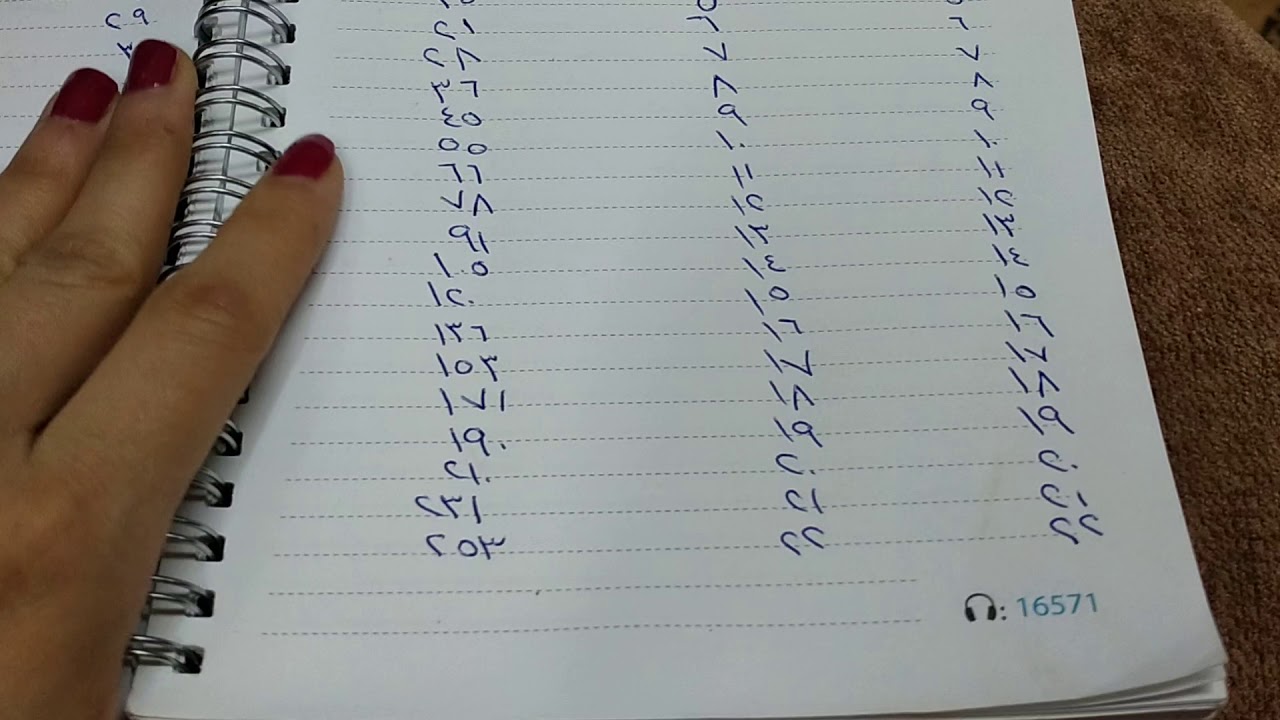 ٢٩
٢١ ٦ ٦
٢٨ ٧ ٧
٣٦ ٨ ٨
٤٥ ٩ ٩
٥٥ ١٠ ١٠
٦٦ ١١ ١١
٧٨ ١٢ ١٢
٩١ ١٣ ١٣
١٠٥ ١٤ ١٤
١٢٠ ١٥ ١٥
١٣٦ ١٦ ١٦
١٥٣ ١٧ ١٧
١٧١ ١٨ ١٨
١٩٠ ١٩ ١٩
٢١٠ ٢٠ ٢٠
٢٣١ ٢١ ٢١
٢٥٣ ٢٢ ٢٢
: 16571